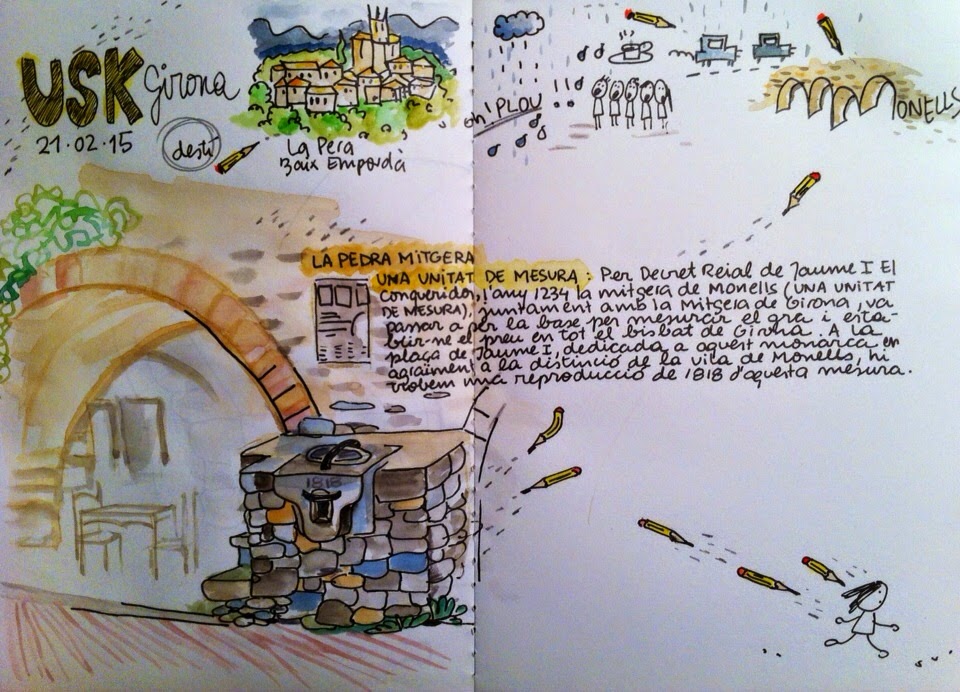 USK Girona
21·02·15
destí
La Pera
Baix Empordà
oh! PLOU!!
MONELLS
LA PEDRA MITGERA
UNA UNITAT DE MESURA : Per Decret Reial de Jaume I El
Conqueridor, l'any 1234 la mitgera de Monells (UNA UNITAT
DE MESURA), juntament amb la Mitgera de Girona, va
passar a per la base per mesurar el gra i esta-
blir-ne el preu en tot el bisbat de Girona. A LA
plaça de Jaume I, dedicada a aquest monarca en
agraïment a la distinció de la vila de Monells, hi
trobem una reproducció de 1818 d'aquesta mesura.
1818